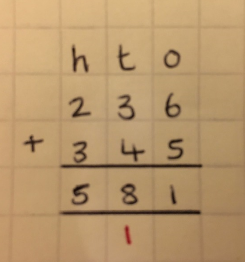 h t o
2 3 6
+ 3 4 5
5 8 1
1